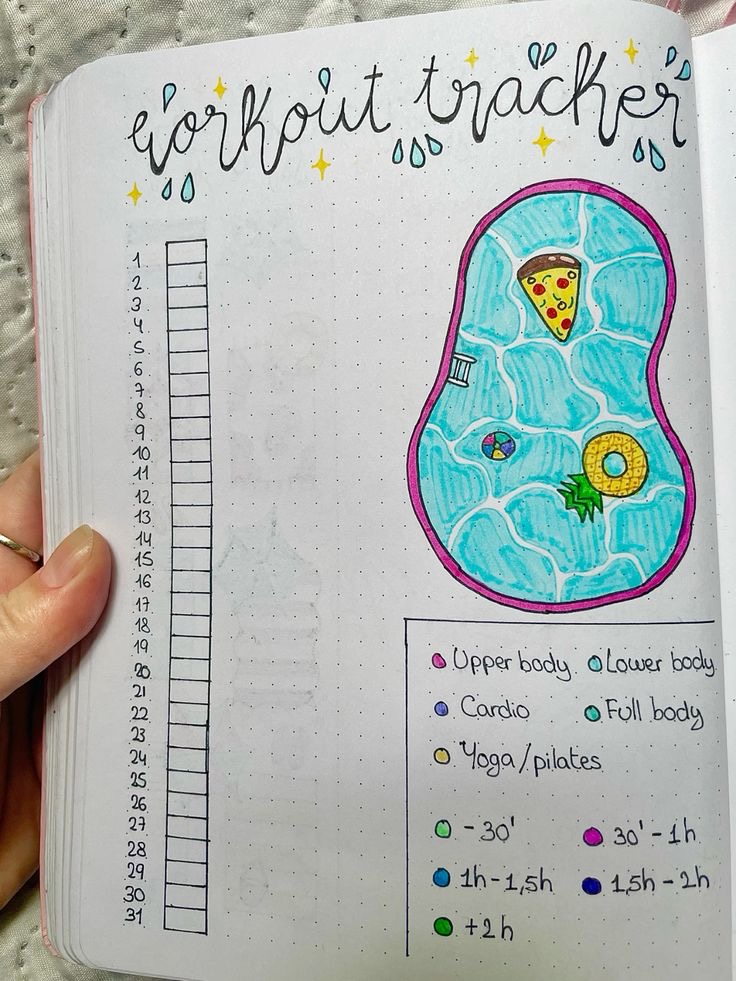 workout tracker
1
2
3
4
5
6
7
8
9
10
11
12
13
14
15
16
17
18
19
20
21
22
23
24
25
26
27
28
29
30
31
Upper body Lower body
Cardio Full body
Yoga/pilates
- 30' 30' - 1h
1h - 1,5h 1,5h - 2h
+2h